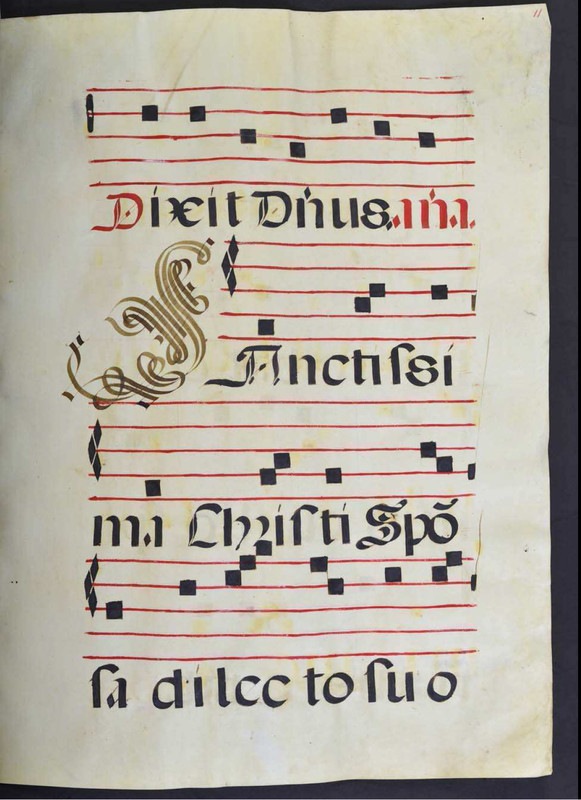 11
Dixit Dñus. aña.
SAnctissi
ma Christi Spõ
sa dilec to suo